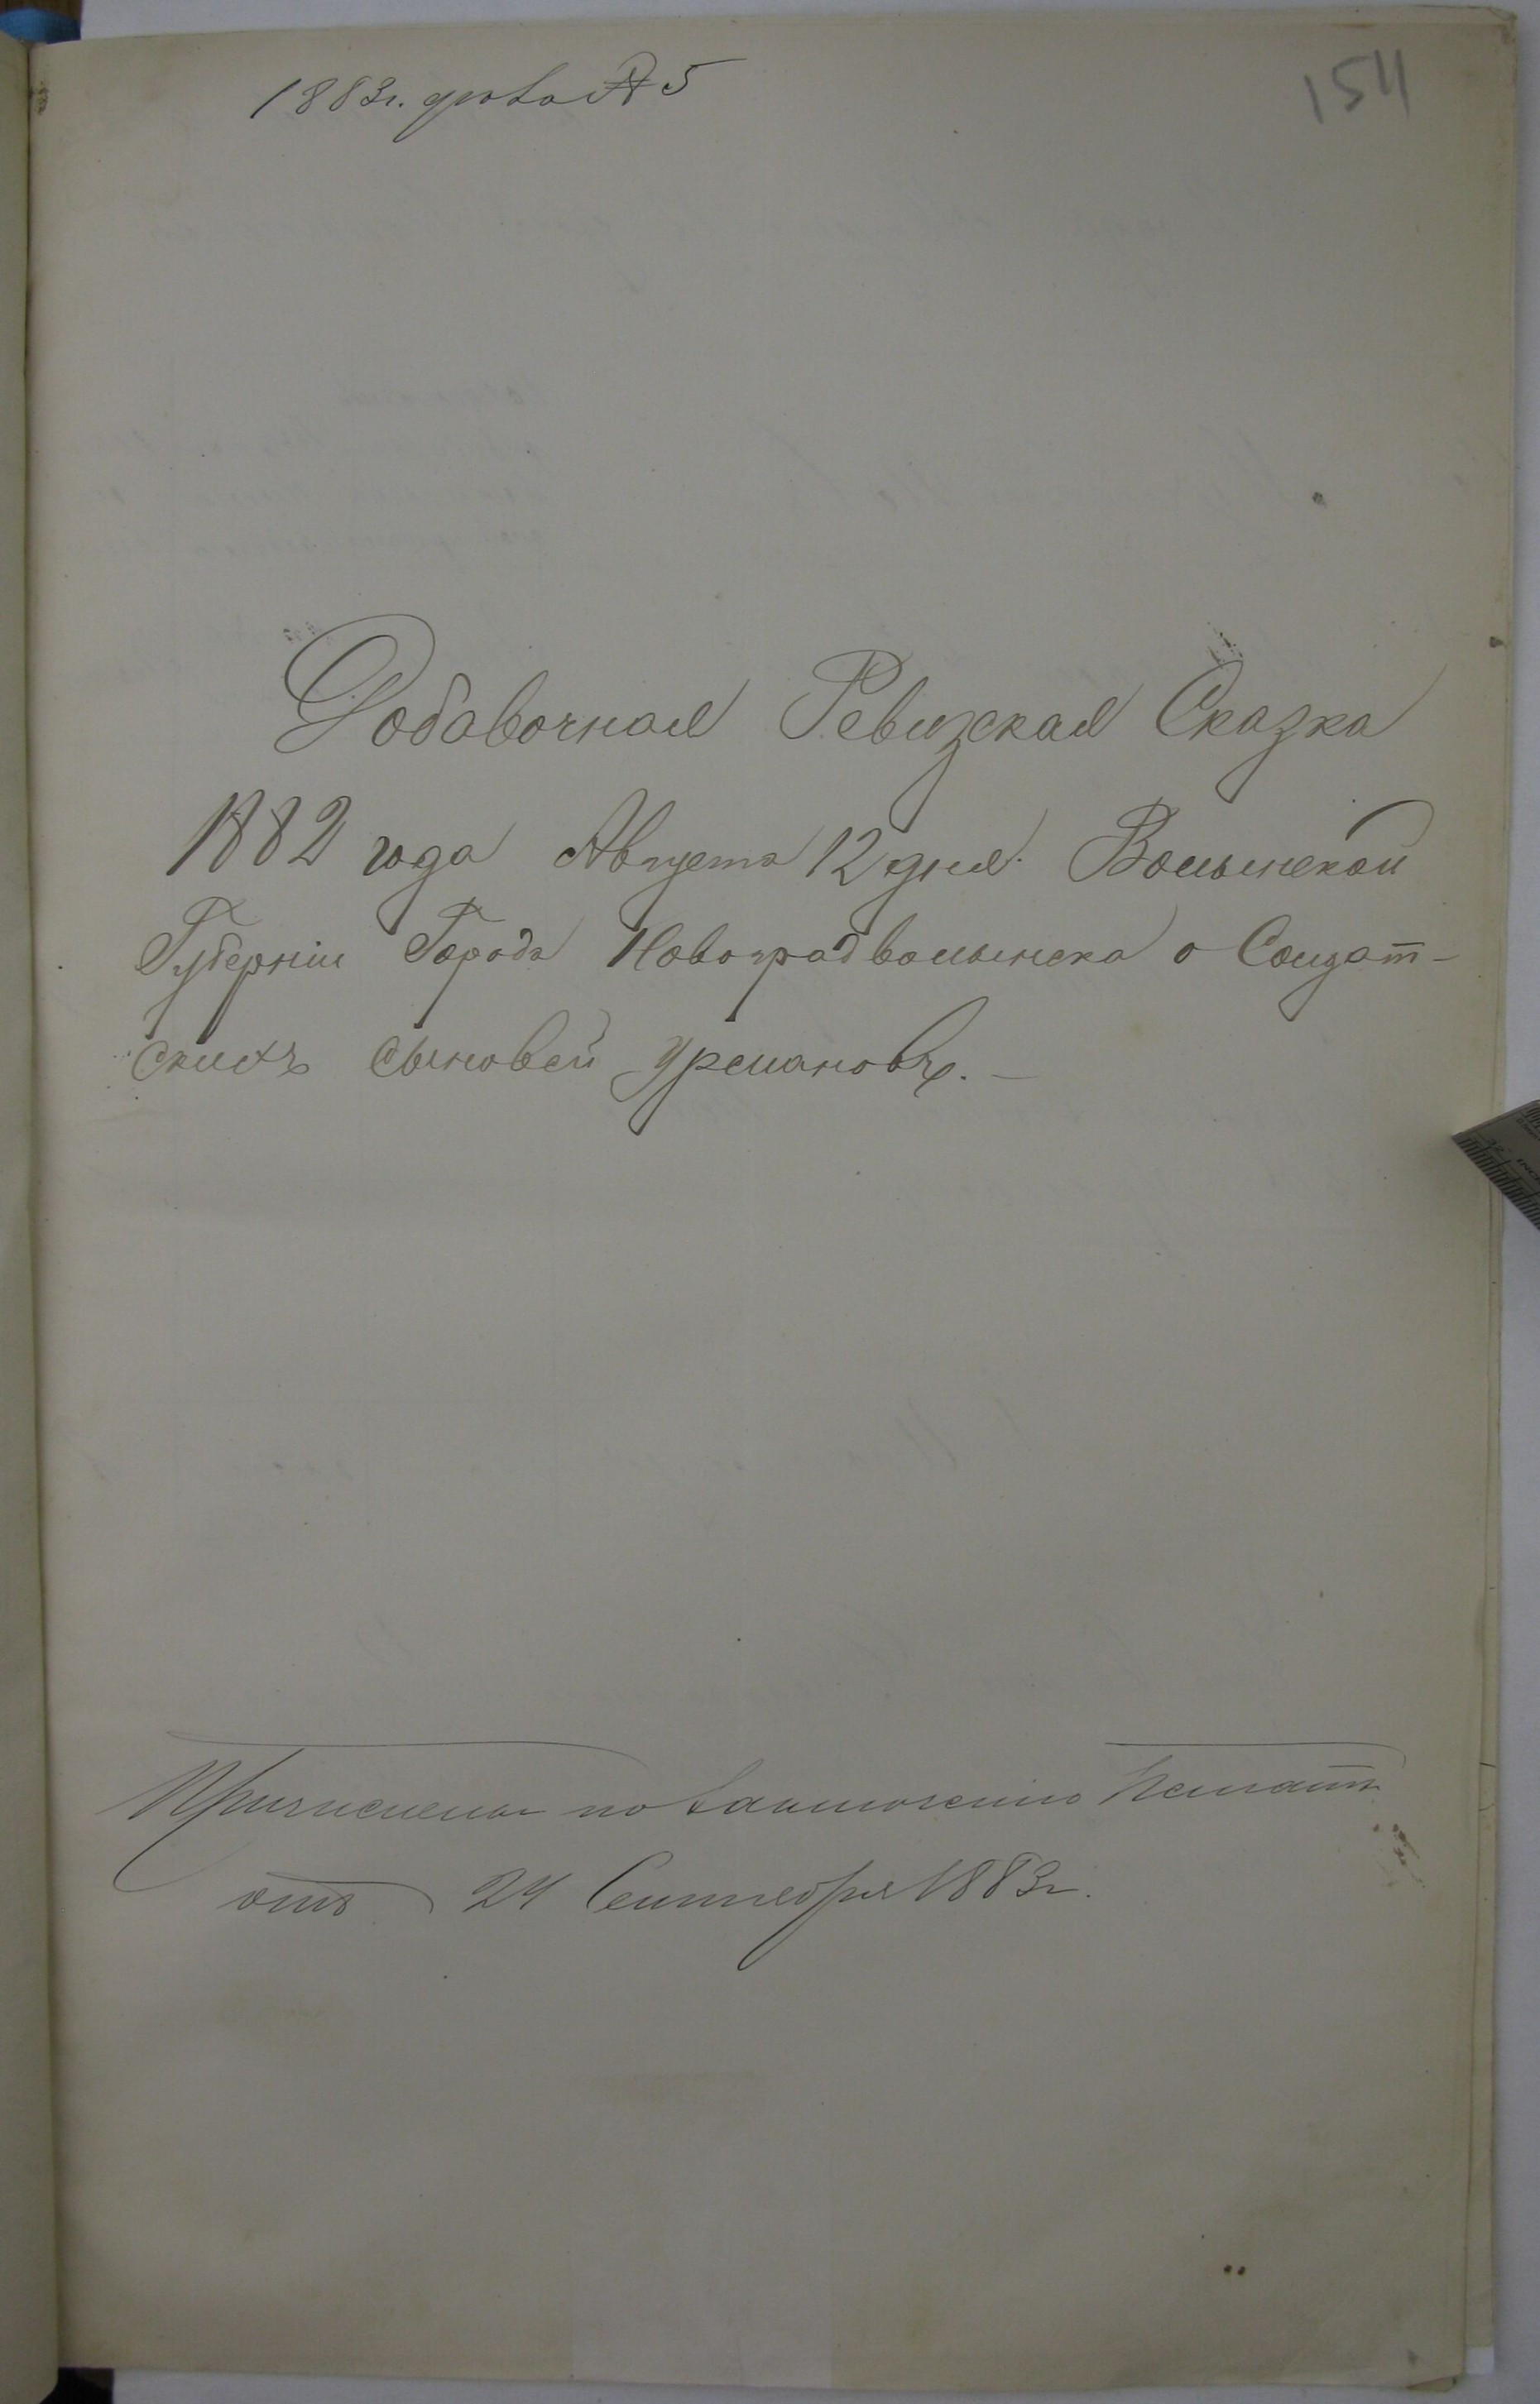 1883г. дѣло № 5
154
Добавочная Ревизская Сказка
1882 года Августа 12 дня. Волынской
Губерніи Города Новоградволынска о Солдат-
скихъ сыновей Урмановъ. —
Причислены по
отъ 24 Сентября 1883г.